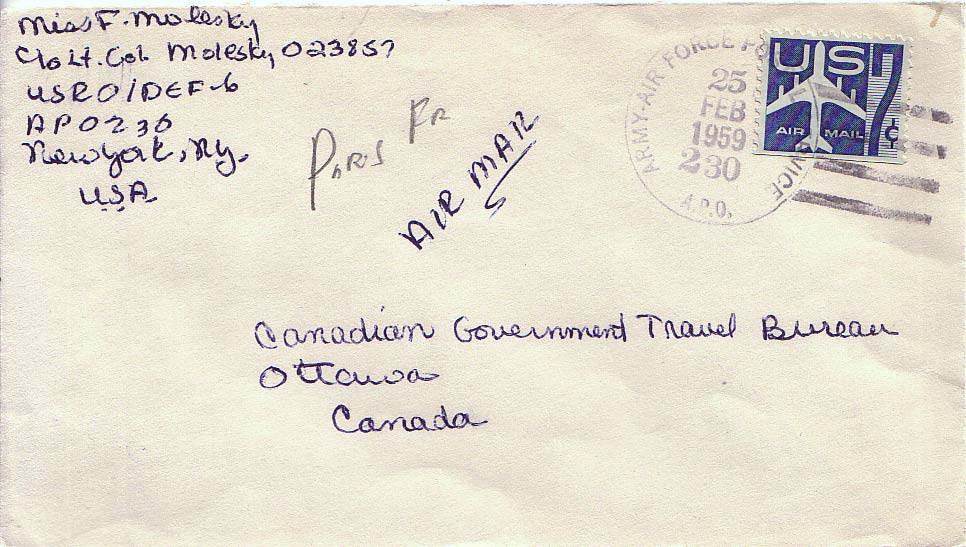 Miss F. Molesky
C/o Lt. Col. Molesky 023857
USRO/DEF-6
APO 230
New York, Ny.
USA
Paris Fr
AIR MAIL
ARMY-AIR FORCE PO VICE
25
FEB
1959
230
A.P.O.
US 7¢
AIR MAIL
Canadian Government Travel Bureau
Ottawa
Canada